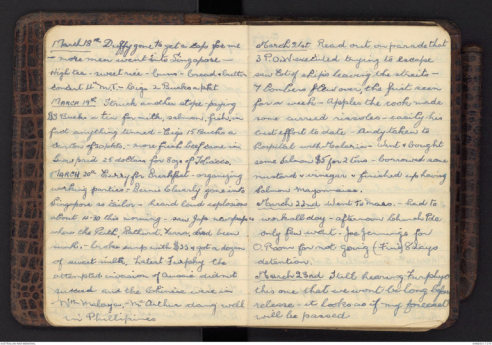 March 18th Duffy gone to get a Cape for me
- more men went into Singapore -
High tea - sweet rice - buns - bread & butter
March 19th. Struck another stope - paying
$3 Bucks a tin for milk, salmon, fish, in
fact anything tinned - Cigs 15 Bucks a
carton of 20 pkts. - more fresh beef came in
Sims paid 25 dollars for 8 ozs of Tobacco.
March 20th Curry for Breakfast - organizing
working parties - Bernie Clearly gone into
Singapore as tailor - heard loud explosions
about 10-30 this morning - saw Jap newspapers
where the Perth, Hood been
sunk. - broke camp with $35 & got a dozen
of sweet milk. Latest Furphy the
attempted invasion of Aussie did not
succeed and the Chinese were in
Nth Malaya, Mc Arthur doing well
in Phillipines
March 21st. Read out on parade that
3 P.O.W. executed trying to escape
saw lot of ships leaving the straits -
7 Bombers flew over, the first seen
for a week - Apples the cook made
some curried rissoles - easily his
best effort to date - Andy taken to
Hospital with Malaria - Went & bought
some Salmon $5 for 2 tins - borrowed some
mustard & vinegar & finished up having
Salmon Mayonnaise.
March 22nd Went to Mass. - Had to
work all day - afternoon Church Pde.
only few went. Joe Jennings for
O. Room for not going (Fine) 8 days
detention.
March 23rd Still hearing Furphys
this one that we wont be long before
release - it looks as if my forecast
will be passed